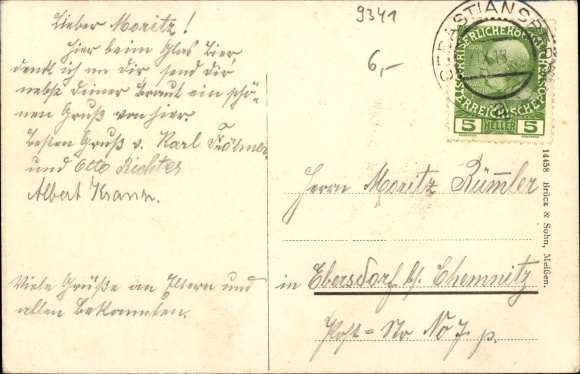 9341
6,-
Lieber Moritz!
Hier beim Glas Bier,
denk ich an Dir, send Dir
nebst deiner Braut ein schö-
nen Gruß von hier.
besten Gruß v. Karl
und Otto Richter
Albert Kranz.
Viele Grüße an Eltern und
allen Bekannten.
SEBASTIANSBERG
KAISERLICHEKÖNIGLICHE
ÖSTERREICHISCHE POST
5 HELLER 5
Herrn Moritz Rümmler
in Ebersdorf b/ Chemnitz
Post=Str. No 7. p.
14458 Brück & Sohn, Meißen.